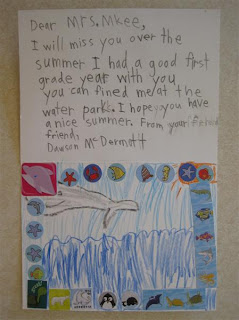 Dear Mrs. Mkee,
I will miss you over the
summer I had a good first
grade year with you
you can fined me/at the
water park. I hope you have
a nice summer. From your
friend,
Dawson McDermott